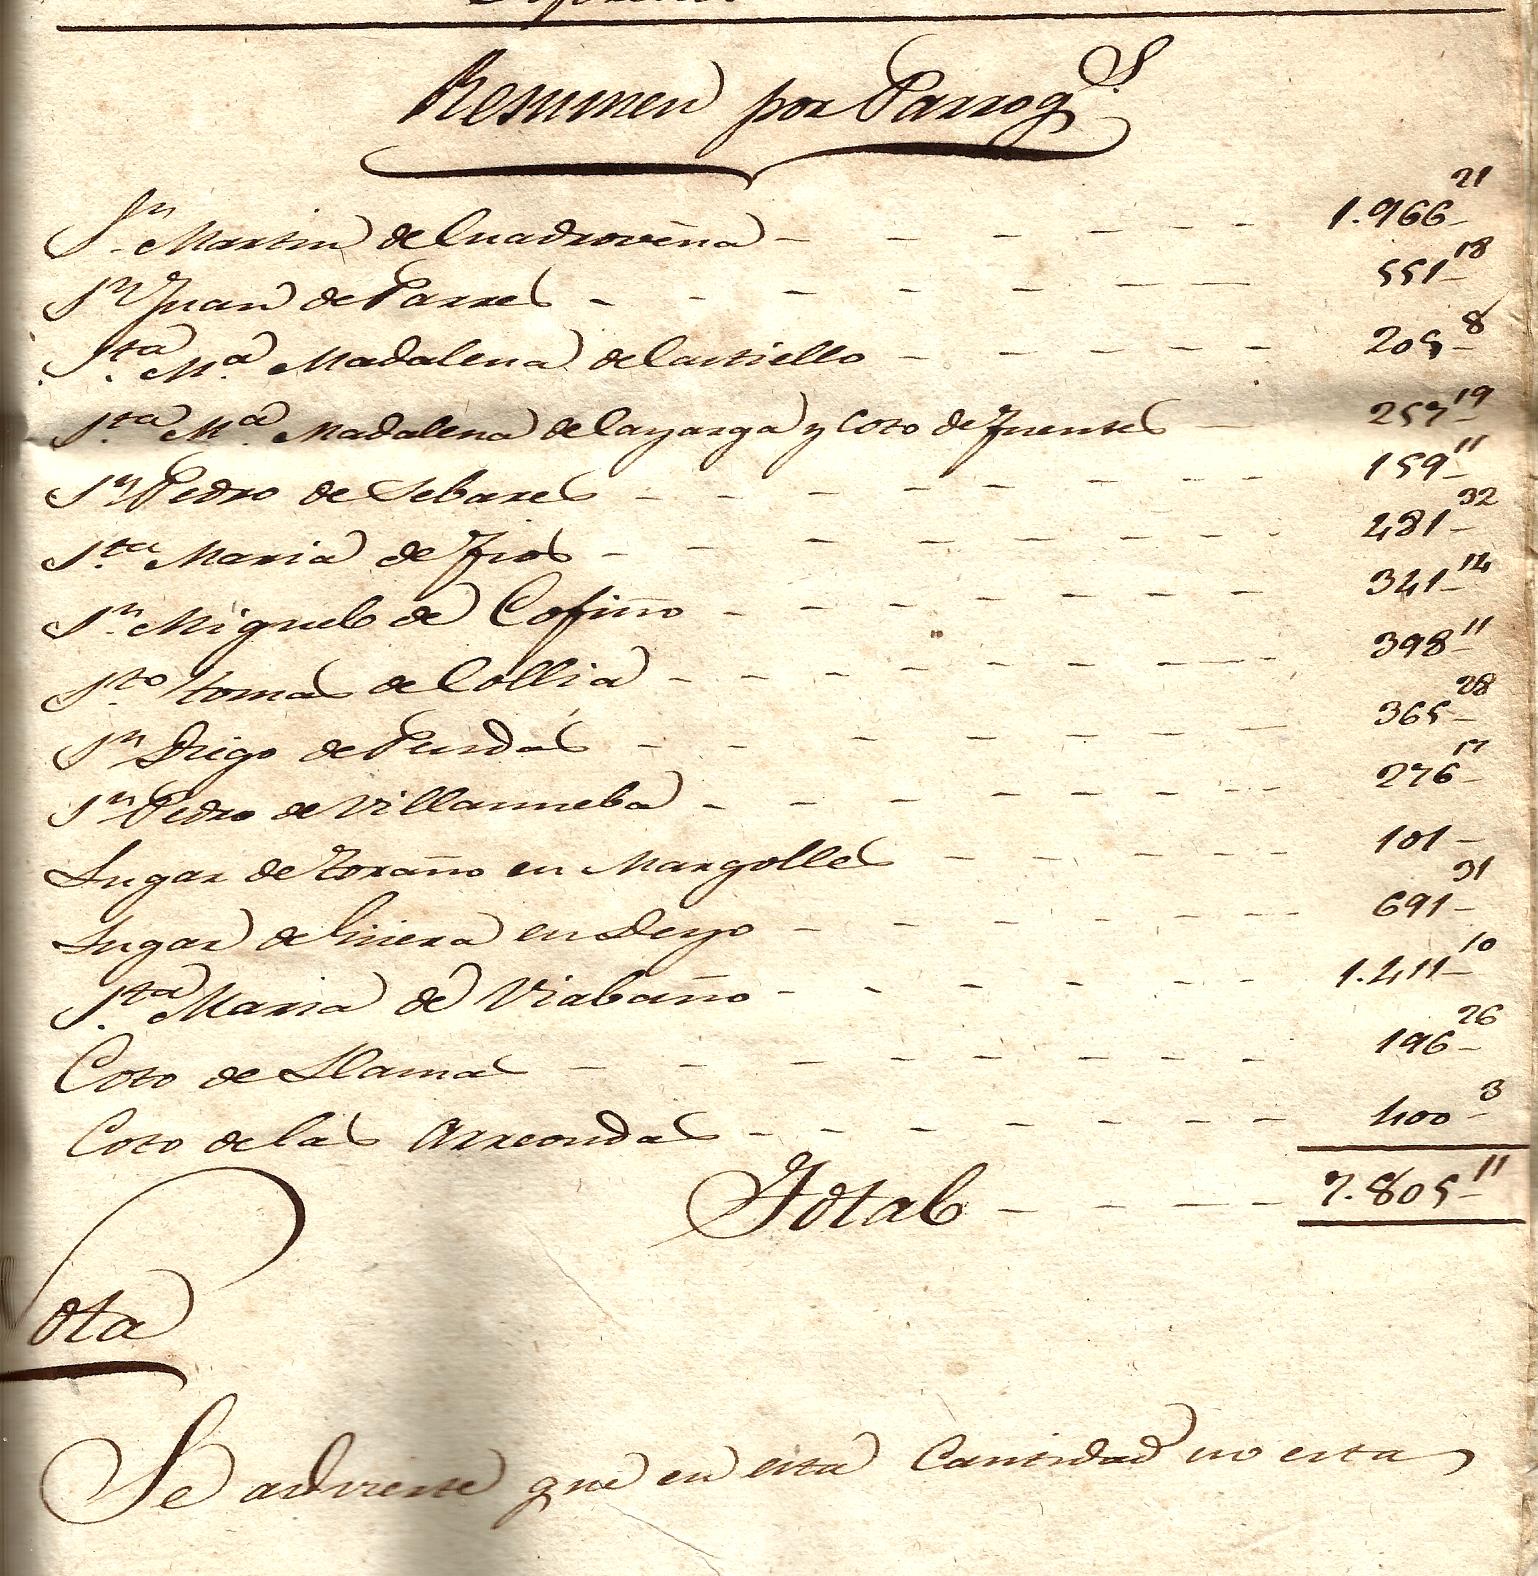 Resumen por Parrog.s
S.n Martin de Cuadroveña - - - - - - 1.966-21
S.n Juan de Parres - - - - - - - 551-18
S.ta M.a Madalena de Castiello - - - - - 205-8
S.ta M.a Madalena de Cayarga y Coto de Fuentes - 257-19
S.n Pedro de Sebares - - - - - - - - 159-11
S.ta Maria de Fios - - - - - - - - 481-32
S.n Miguel de Cofiño - - - - - - - 341-14
S.to tomas de Collia - - - - - - - - 398-11
S.n Drigo de Pendas - - - - - - - 365-28
S.n Pedro de Villanueba - - - - - - - 276-17
Lugar de Toraño en Margolles - - - - 101-
Lugar de Linera en Dego - - - - - - 691-31
S.ta Maria de Viabaño - - - - - - 1.411-10
Coto de Llamas - - - - - - - - 196-26
Coto de las Arreondas - - - - - - - 400-3
Total - - - - 7.805-11
Nota
Se advierte que en esta Cantidad no esta